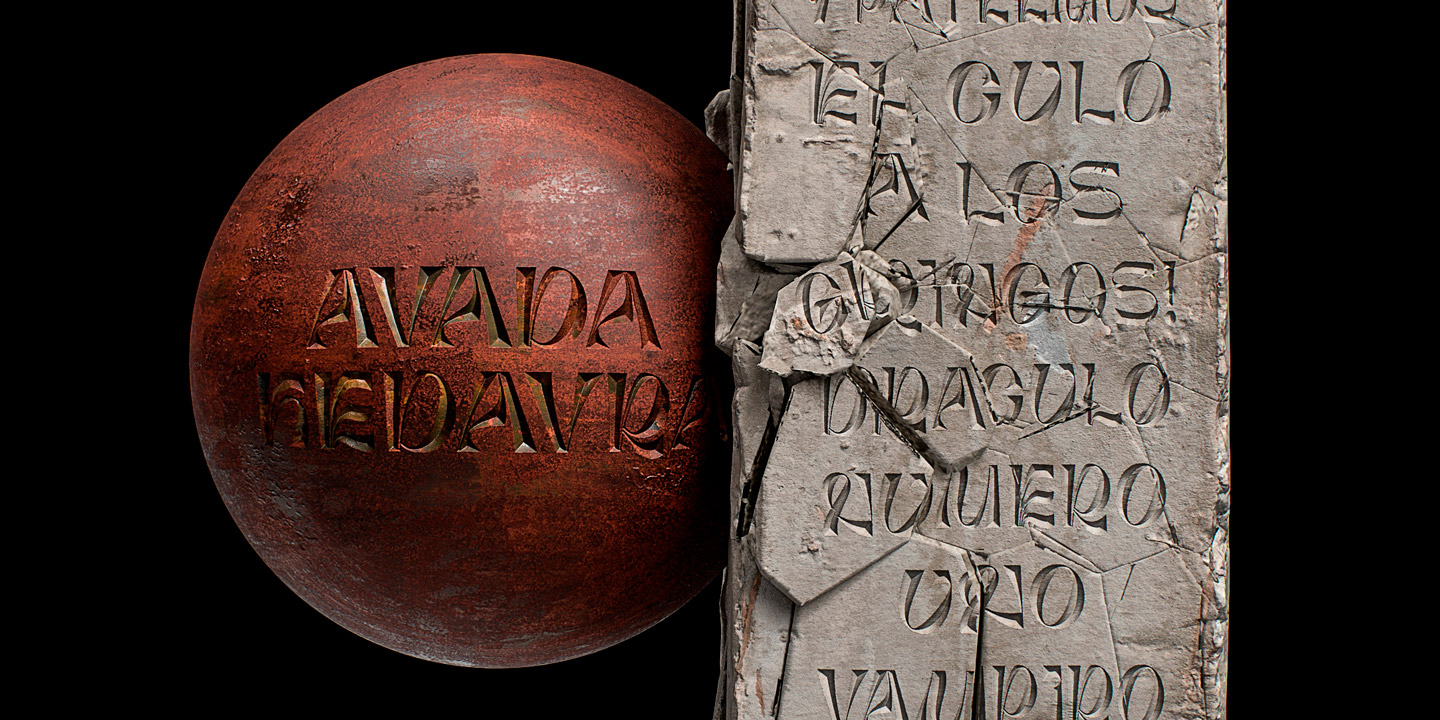 AVADA
KEDAVRA
Y PATEENOS
EL CULO
A LOS
GIRINGOS!
DRACULO
NUMERO
UNO
VAMPIRO